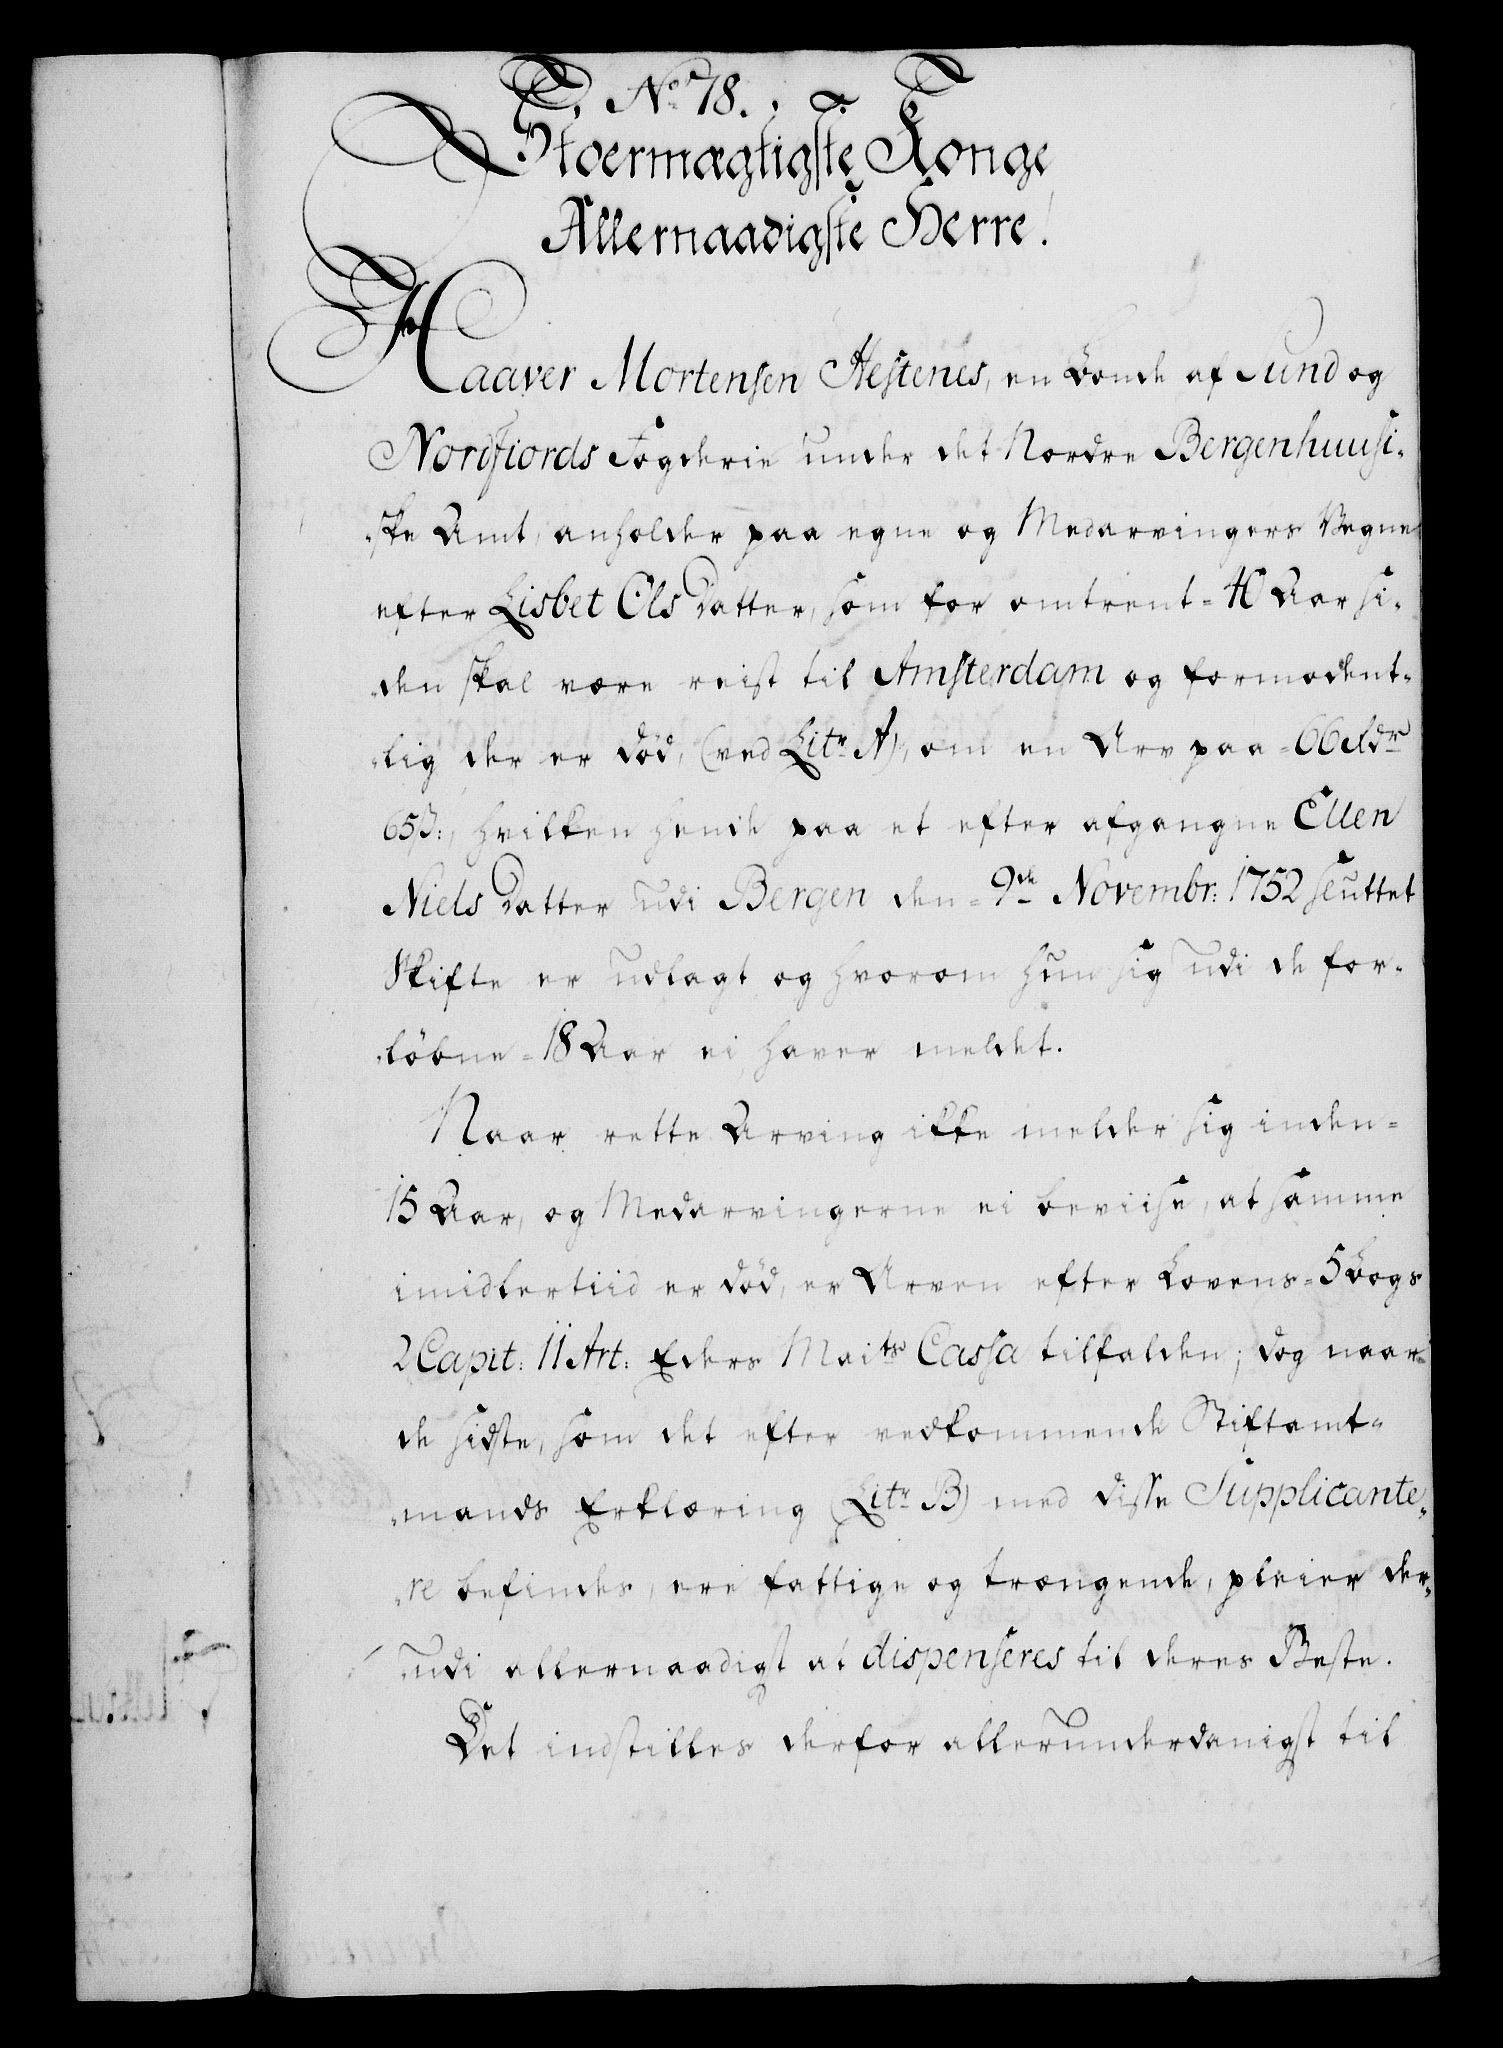 No 78.
Stoermægtigste Konge
Allernaadigste Herre!
Haaver Mortensen Hestenes, en Bonde af Sund og
Nordfiords Fogderie under det Nordre Bergenhuusi-
ske Amt, anholder paa egne og Medarvingers Vegne
efter Lisbet Ols Datter, som for omtrent 40 Aar si-
den skal være reist til Amsterdam og formodent-
lig der er död, (ved Litr A), om en Arv paa 66 Rdr
65 s:, hvilken hende paa et efter afgangne Ellen
Niels Datter udi Bergen den 9de Novembr: 1752 sluttet
Skifte er udlagt og hvorom hun sig udi de for-
löbne 18 Aar ei haver meldet.
Naar rette Arving ikke melder sig inden
15 Aar, og Medarvingerne ei beviise, at samme
imidlertiid er död, er Arven efter Lovens 5 Bogs
2 Capit: 11 Art: Eders Maits Cassa tilfalden; dog naar
de sidste, som det efter vedkommende Stiftamt-
mands Erklæring (Litr B) med disse Supplicante-
re befindes, ere fattige og trængende, pleier der-
udi allernaadigst at dispenseres til deres Beste.
Det indstilles derfor allerunderdanigst til